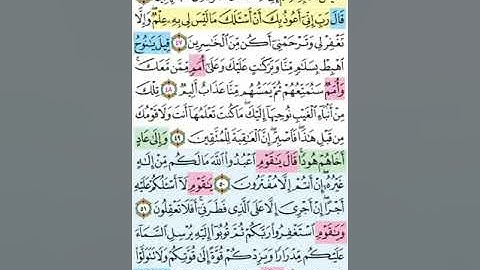 قَالَ رَبِّ إِنِّىٓ أَعُوذُ بِكَ أَنْ أَسْـَٔلَكَ مَا لَيْسَ لِى بِهِۦ عِلْمٌ ۖ وَإِلَّا
تَغْفِرْ لِى وَتَرْحَمْنِىٓ أَكُن مِّنَ ٱلْخَـٰسِرِينَ ٤٧ قِيلَ يَـٰنُوحُ
ٱهْبِطْ بِسَلَـٰمٍ مِّنَّا وَبَرَكَـٰتٍ عَلَيْكَ وَعَلَىٰٓ أُمَمٍ مِّمَّن مَّعَكَ ۚ
وَأُمَمٌ سَنُمَتِّعُهُمْ ثُمَّ يَمَسُّهُم مِّنَّا عَذَابٌ أَلِيمٌ ٤٨ تِلْكَ
مِنْ أَنۢبَآءِ ٱلْغَيْبِ نُوحِيهَآ إِلَيْكَ ۖ مَا كُنتَ تَعْلَمُهَآ أَنتَ وَلَا قَوْمُكَ
مِن قَبْلِ هَـٰذَا ۖ فَٱصْبِرْ ۖ إِنَّ ٱلْعَـٰقِبَةَ لِلْمُتَّقِينَ ٤٩ وَإِلَىٰ عَادٍ
أَخَاهُمْ هُودًا ۚ قَالَ يَـٰقَوْمِ ٱعْبُدُوا۟ ٱللَّهَ مَا لَكُم مِّنْ إِلَـٰهٍ
غَيْرُهُۥٓ ۖ إِنْ أَنتُمْ إِلَّا مُفْتَرُونَ ٥٠ يَـٰقَوْمِ لَآ أَسْـَٔلُكُمْ عَلَيْهِ
أَجْرًا ۖ إِنْ أَجْرِىَ إِلَّا عَلَى ٱلَّذِى فَطَرَنِىٓ ۚ أَفَلَا تَعْقِلُونَ ٥١
وَيَـٰقَوْمِ ٱسْتَغْفِرُوا۟ رَبَّكُمْ ثُمَّ تُوبُوٓا۟ إِلَيْهِ يُرْسِلِ ٱلسَّمَآءَ
عَلَيْكُم مِّدْرَارًا وَيَزِدْكُمْ قُوَّةً إِلَىٰ قُوَّتِكُمْ وَلَا تَتَوَلَّوْا۟